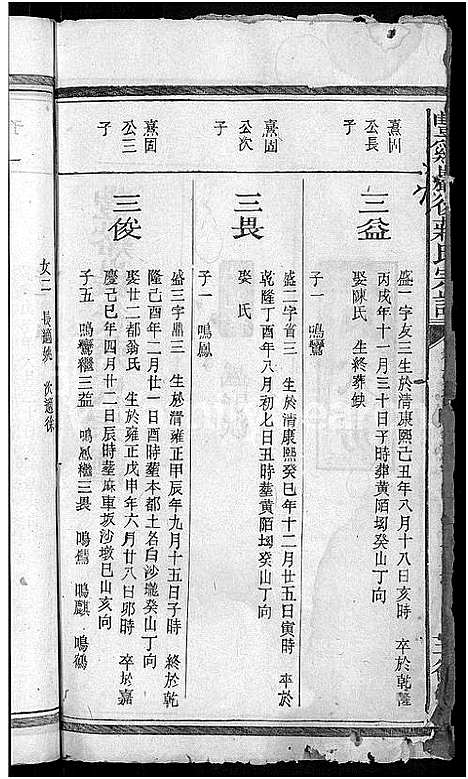 熹固
公長
子
三益
盛一字友三 生於清康熙己丑年八月十八日亥時 卒於乾隆
丙戌年十一月三十日子時葬黄陌坳癸山丁向
娶陳氏 生終葬缺
子一 鳴鸞
熹固
公次
子
三畏
盛二字省三 生於清康熙癸巳年十二月廿五日寅時 卒於
乾隆丁酉年八月初七日丑時𦵏黄陌坳癸山丁向
娶 氏
子一 鳴鳳
熹固
公三
子
三俊
盛三字鼎三 生於清雍正甲辰年九月十五日子時 終於乾
隆己酉年二月廿一日酉時𦵏本都土名白沙壠癸山丁向
娶廿二都翁氏 生於雍正戊申年六月廿八日卯時 卒於嘉
慶己巳年四月廿二日辰時𦵏麻車坂沙墩巳山亥向
子五 鳴鸞繼三益 鳴鳳繼三畏 鳴儒 鳴麒 鳴鶴
女二 長適姚 次適徐